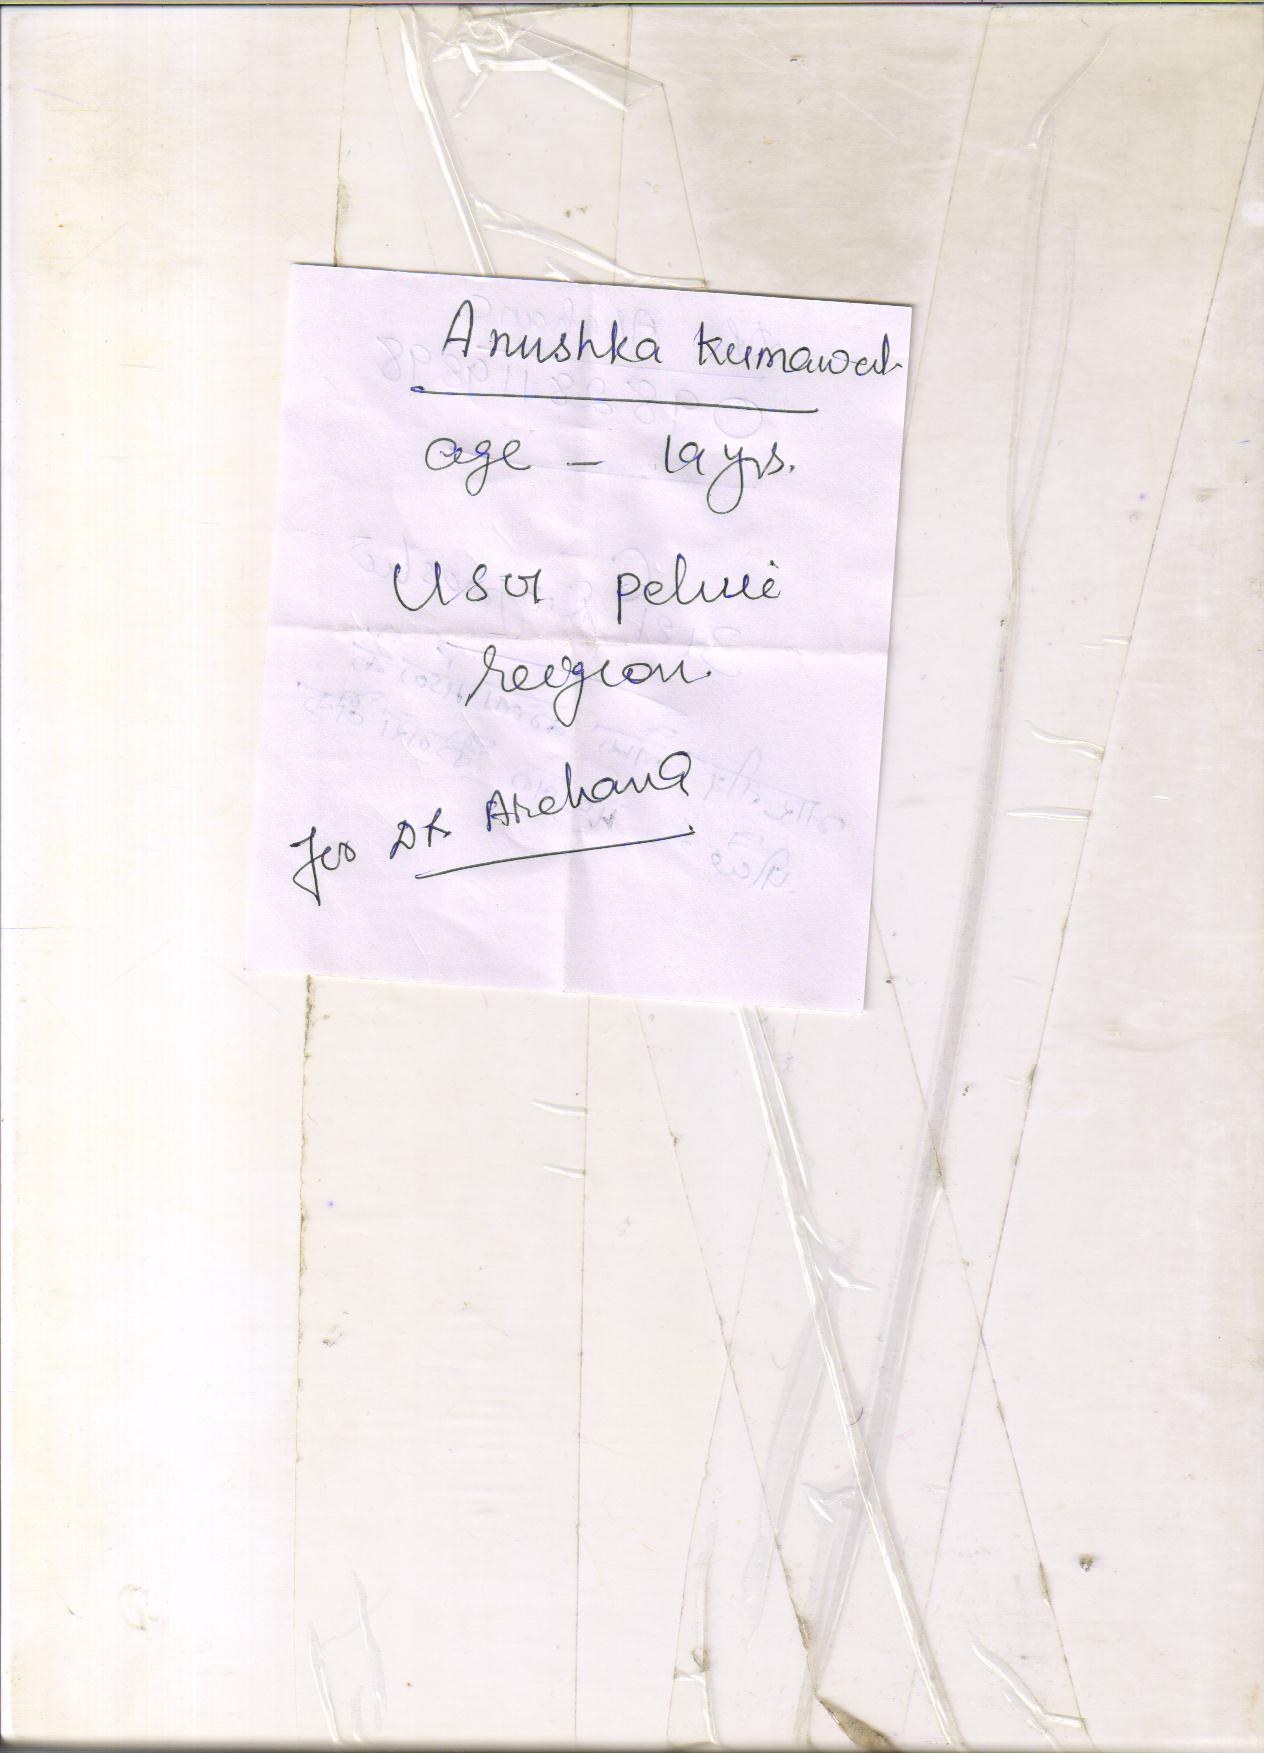 Anushka Kumawat
age - 19 yrs.
USG pelvic
region.
for DR Archana